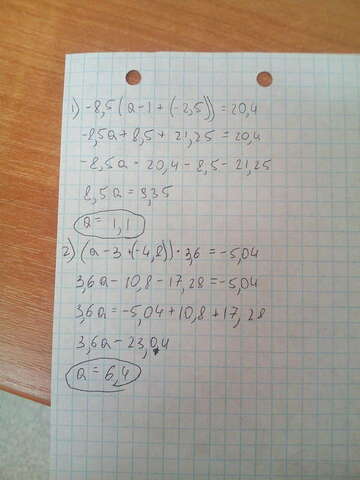 1) -8,5(a-1+(-2,5))=20,4
-8,5a+8,5+21,25=20,4
-8,5a=20,4-8,5-21,25
8,5a=9,35
a=1,1
2) (a-3+(-4,8))·3,6=-5,04
3,6a-10,8-17,28=-5,04
3,6a=-5,04+10,8+17,28
3,6a=23,04
a=6,4